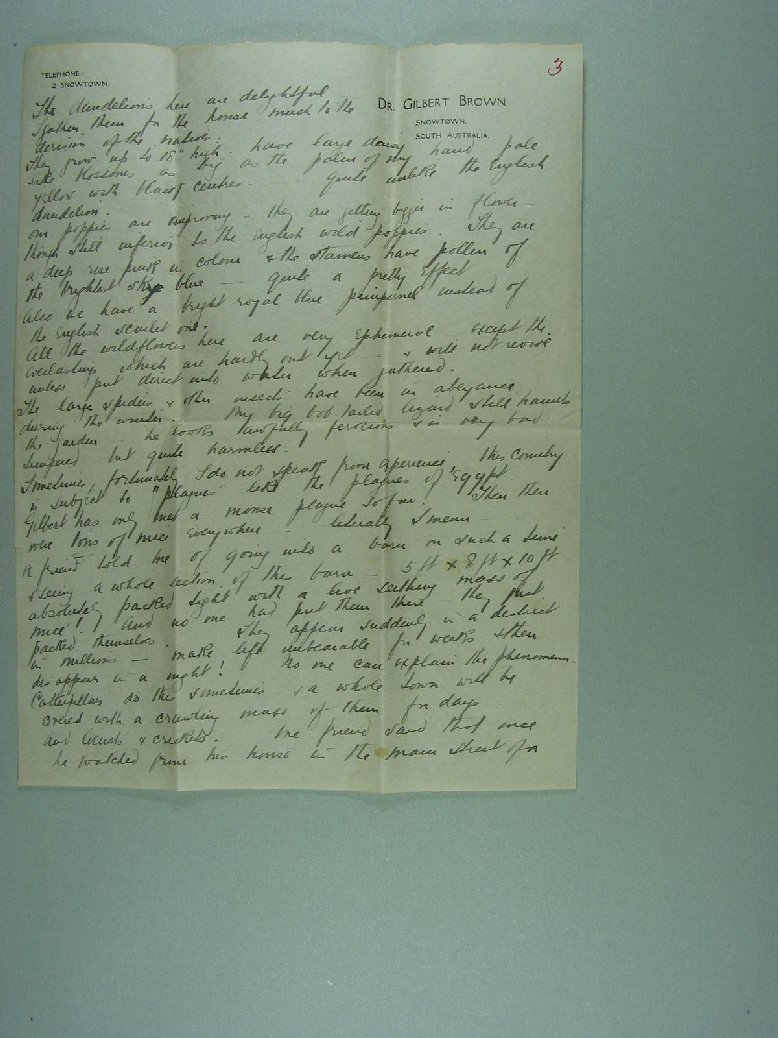 3
TELEPHONE:
2 SNOWTOWN.
DR. GILBERT BROWN.
SNOWTOWN.
SOUTH AUSTRALIA.
The dandelions here are delightful
I gather them for the house much to the
derision of the natives.
They grow up to 18" high. have large daisy
like blossoms as big as the palm of my hand pale
yellow with black centres — quite unlike the English
dandelion.
our poppies are improving — they are getting bigger in flower —
though still inferior to the english wild poppies. They are
a deep rose pink in colour & the stamens have pollen of
the brightest sky blue — quite a pretty effect
Also we have a bright royal blue pimpernel instead of
the English scarlet one.
All the wildflowers here are very ephemeral except the
everlastings which are hardly out yet — & will not revive
unless put direct into water when gathered.
The large spiders & other insects have been in abeyance
during the winter. My big bob-tailed lizard still haunts
the garden he looks awfully ferocious & is very bad
tempered but quite harmless.
Sometimes, fortunately I do not speak from experience this country
is subject to "plagues" like the plagues of Egypt
Gilbert has only met a mouse plague so far. Then there
were tons of mice everywhere — literally I mean —
A friend told me of going into a barn on such a time
& seeing a whole section of the barn — 5 ft x 8 ft x 10 ft
absolutely packed tight with a live seething mass of
mice! And no one had put them there they just
packed themselves. They appear suddenly in a district
in millions — make life unbearable for weeks & then
disappear in a night! No one can explain the phenomenon.
Caterpillars do this sometimes & a whole town will be
covered with a crawling mass of them for days
and locusts & crickets. One friend said that once
he watched from his house in the main street of a